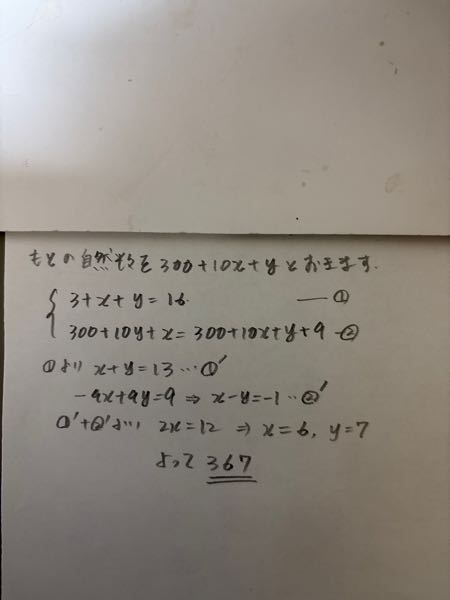 もとの自然数を300+10x+yとおきます.
3+x+y=16 ——①
300+10y+x=300+10x+y+9 —②
①より x+y=13…①′
-9x+9y=9 ⇒ x-y=-1…②′
①′+②′より 2x=12 ⇒ x=6, y=7
よって 367